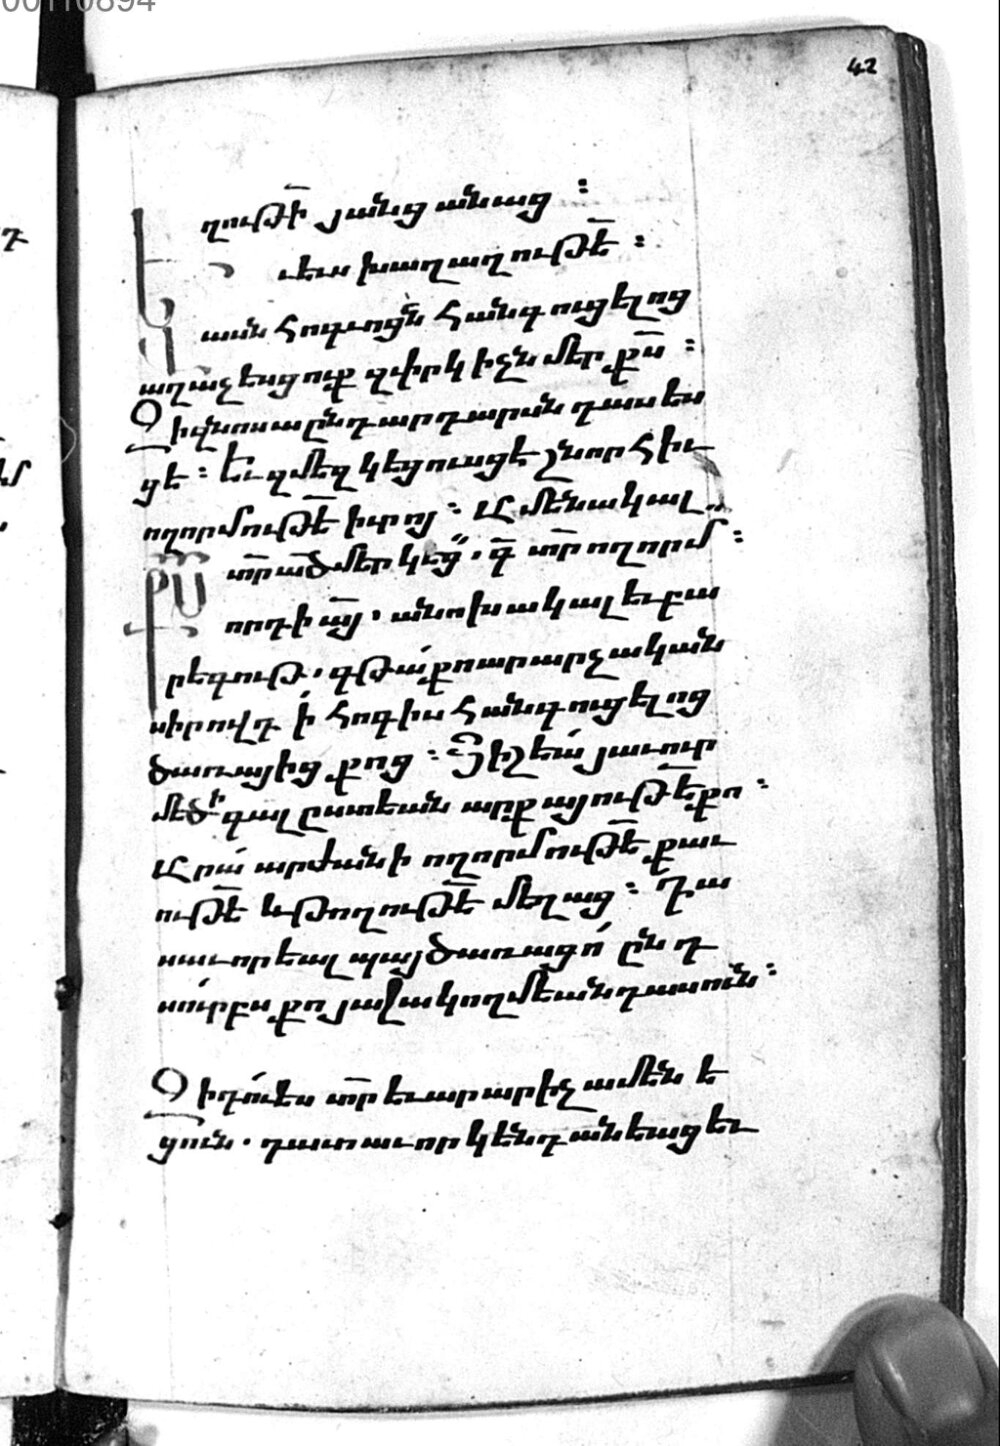 42
ղութի՛ յանցանաց ։
ևեւս խաղաղութե՛ ։
վասն հոգւոցն հանգուցելոց
աղաչեսցուք զփրկիչն մեր քս ։
Զինոսա ընդ արդարսն դասես
ցե ։ եւ զմեզ կեցուսցե շնորհիւ
ողորմութե իւրոյ ։ Ամենակալ
տր ած մեր կեց . գ տր ողորմ ։
որդի այ . անոխակալ եւ բա
րեգութ . գթա քո արարչական
սիրովդ ի հոգիս հանգուցելոց
ծառայից քոց ։ Յիշեա յաւուր
մեծի գալստեան արքայութե քո ։
Արա արժանի ողորմութե քաւ
ութե և թողութե մեղաց ։ Դա
սաւորեալ պայծառացո ընդ
սուրբս քո յաջակողմեան դասուն ։
Զի դու ես տր եւ արարիչ ամենե
ցուն . դատաւոր կենդանեաց եւ